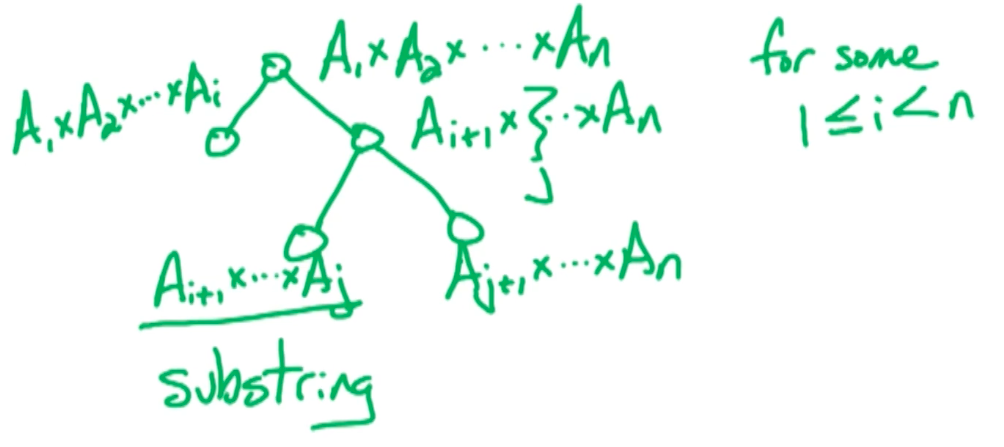 A₁×A₂×⋯×Aₙ
for some
1≤i<n
A₁×A₂×⋯×Aᵢ
Aᵢ₊₁×⋯×Aₙ
j
Aᵢ₊₁×⋯×Aⱼ
Aⱼ₊₁×⋯×Aₙ
substring